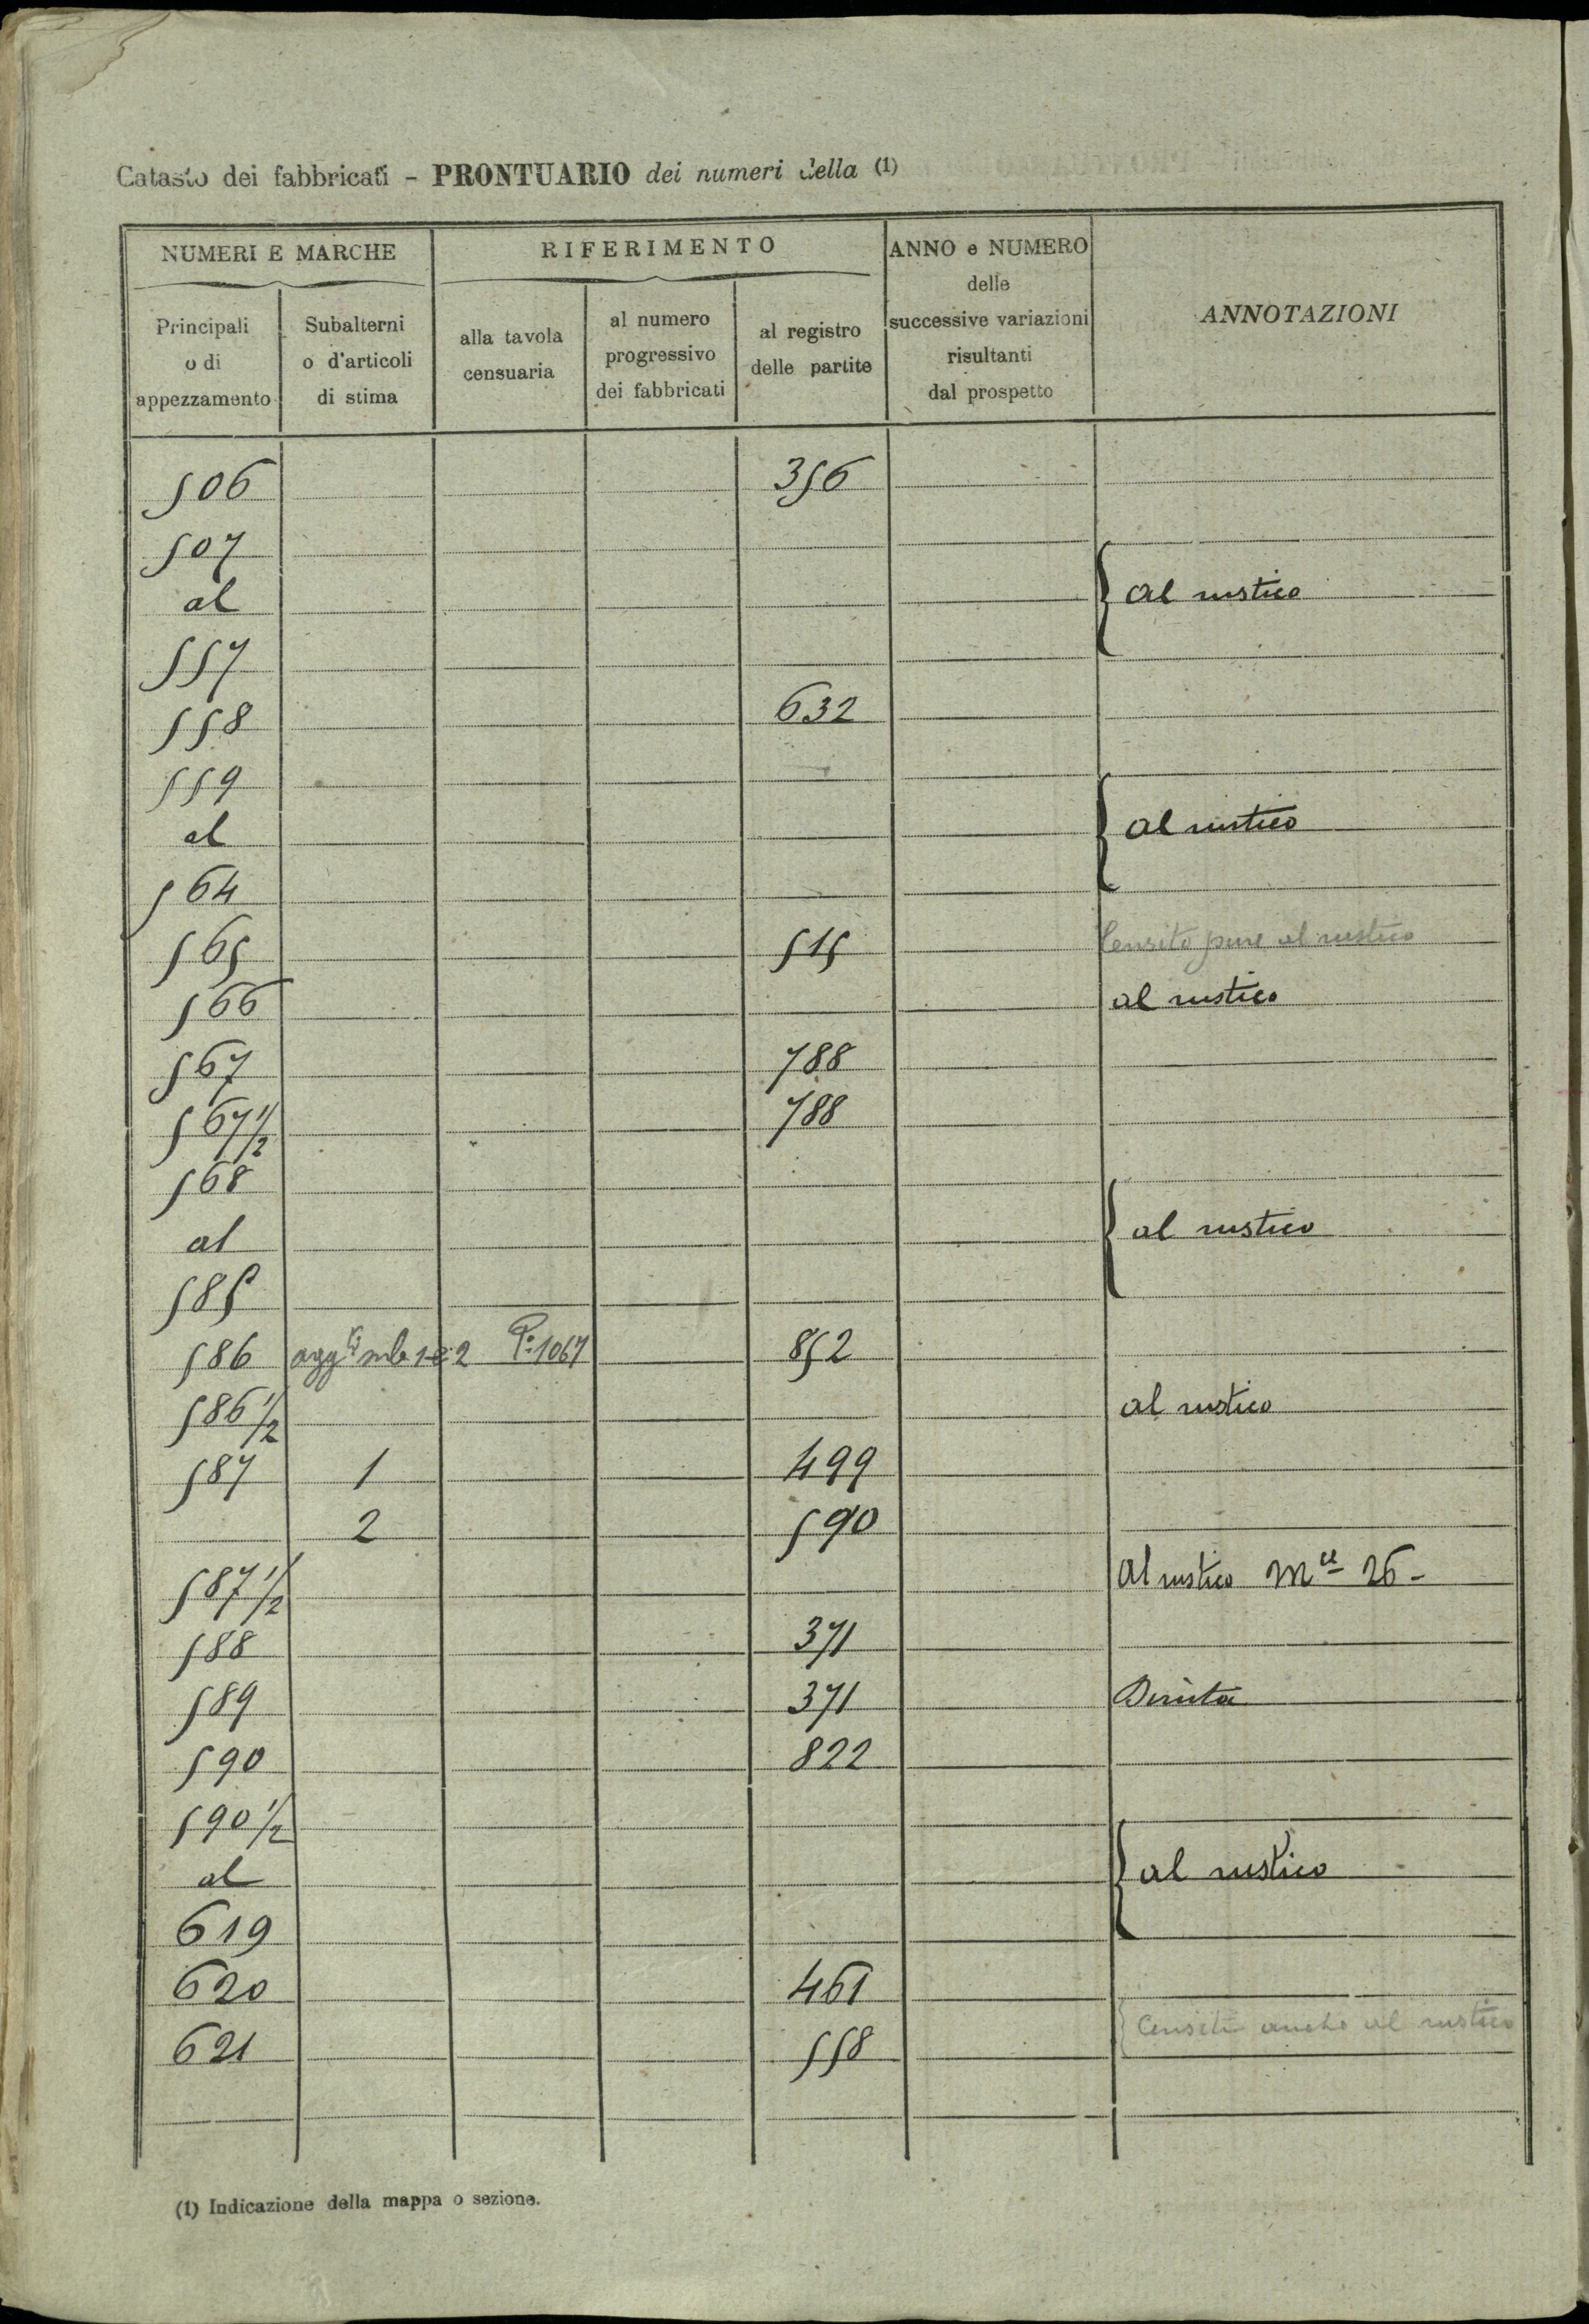 Catasto dei fabbricati - PRONTUARIO dei numeri della (1)
NUMERI E MARCHE RIFERIMENTO ANNO e NUMERO delle successive variazioni risultanti dal prospetto ANNOTAZIONI
Principali o di appezzamento Subalterni o d'articoli di stima alla tavola censuaria al numero progressivo dei fabbricati al registro delle partite
506 356
507
al al rustico
557
558 632
559
al al rustico
564
565 515 Censito pure al rustico
566 al rustico
567 788
567 1/2 788
568
al al rustico
585
586 aggti sub 1 e 2 P: 1067 852
586 1/2 al rustico
587 1 499
2 590
587 1/2 Al rustico 26-
588 371
589 371 Diruta
590 822
590 1/2
al al rustico
619
620 461
621 558 Censiti anche al rustico
(1) Indicazione della mappa o sezione.